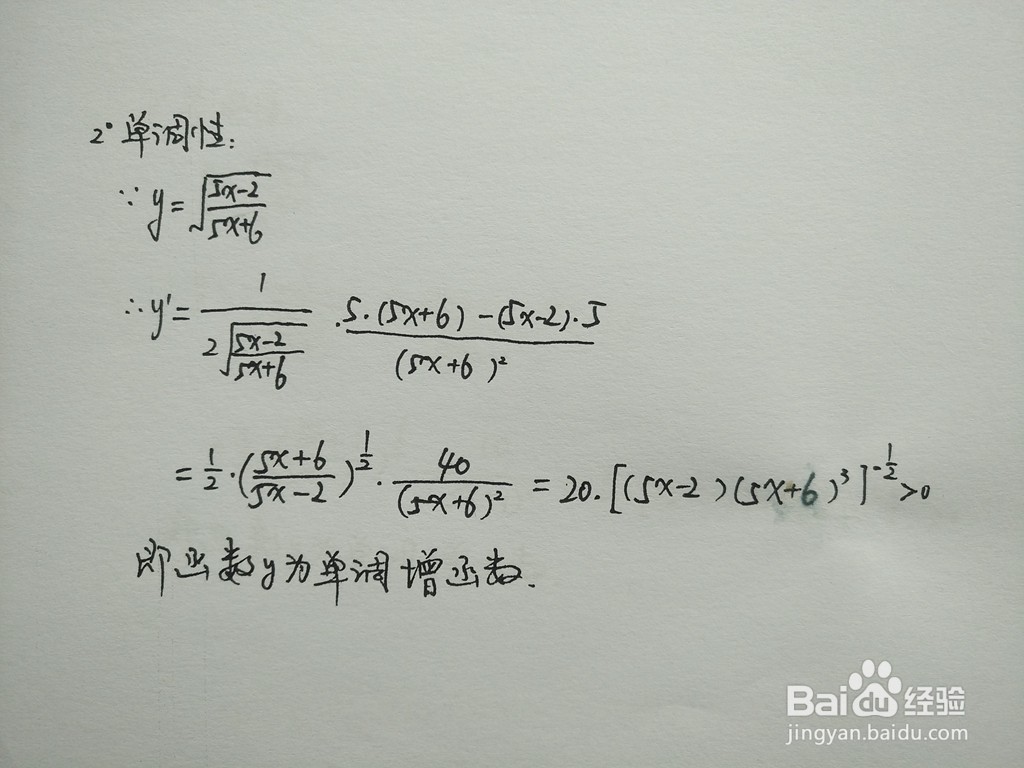 2° 单调性:
∵ y = √((5x-2)/(5x+6))
∴ y' = 1/(2√((5x-2)/(5x+6))) · (5·(5x+6)-(5x-2)·5)/(5x+6)²
= 1/2·((5x+6)/(5x-2))^(1/2) · 40/(5x+6)² = 20·[(5x-2)(5x+6)³]^(-1/2) >0
即函数y为单调增函数.
Bai 经验
jingyan.baidu.com